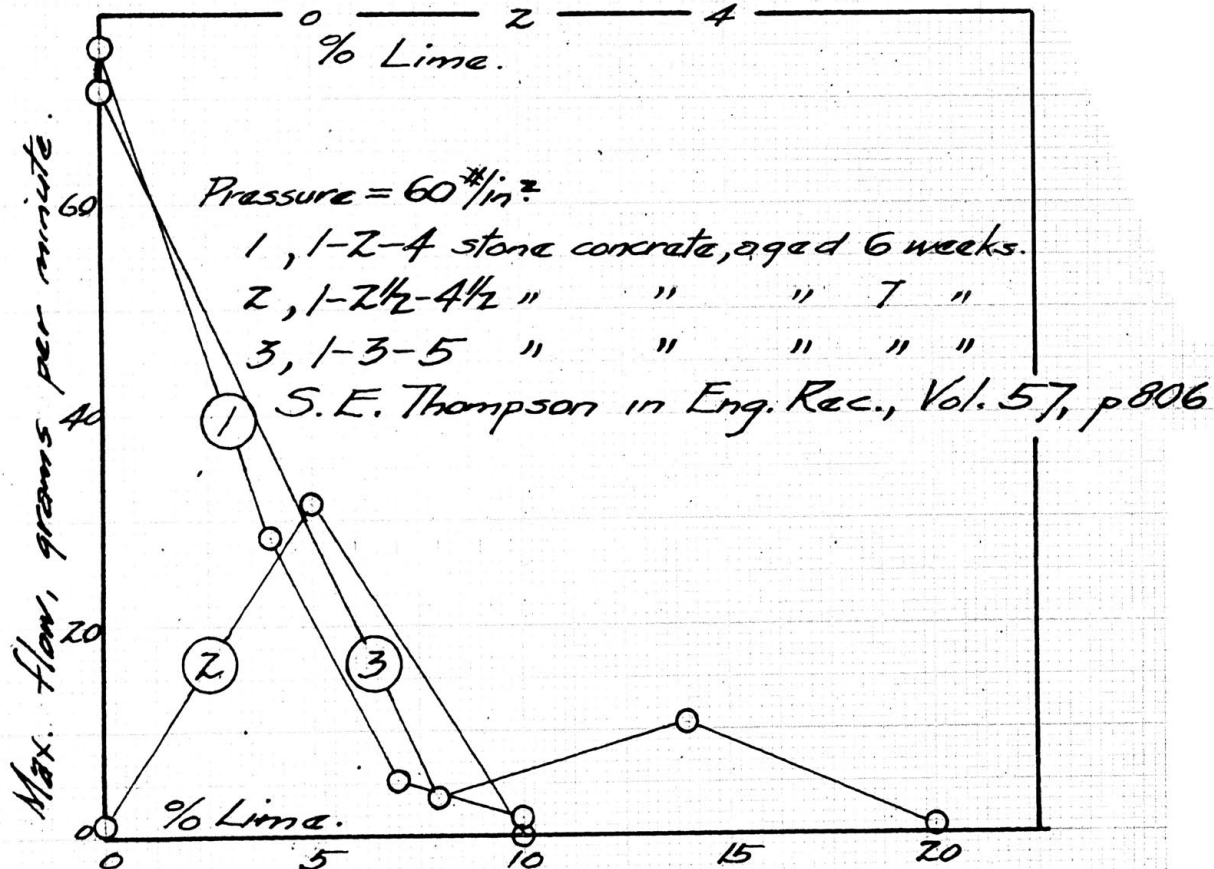 0 2 4
% Lime.
Max. flow, grams per minute.
60
40
20
0
Pressure = 60#/in²
1, 1-2-4 stone concrete, aged 6 weeks.
2, 1-2½-4½ " " " 7 "
3, 1-3-5 " " " " "
S. E. Thompson in Eng. Rec., Vol. 57, p 806
1
2
3
% Lime.
0 5 10 15 20